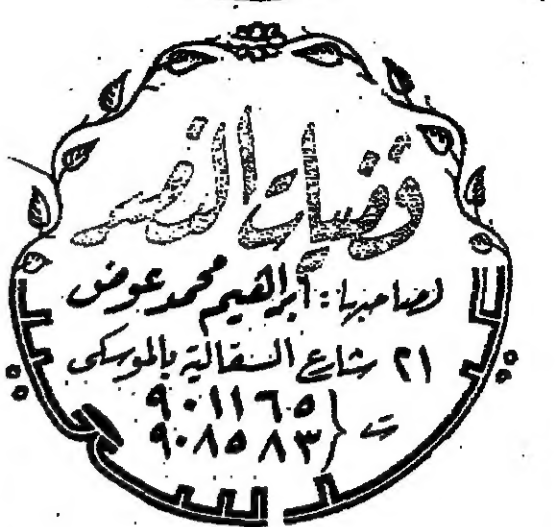 فضيات النصر
لصاحبها: ابراهيم محمد عوض
٢١ شارع السقالية بالموسكى
ت { ٩٠١١٦٥
٩٠٨٥٨٣